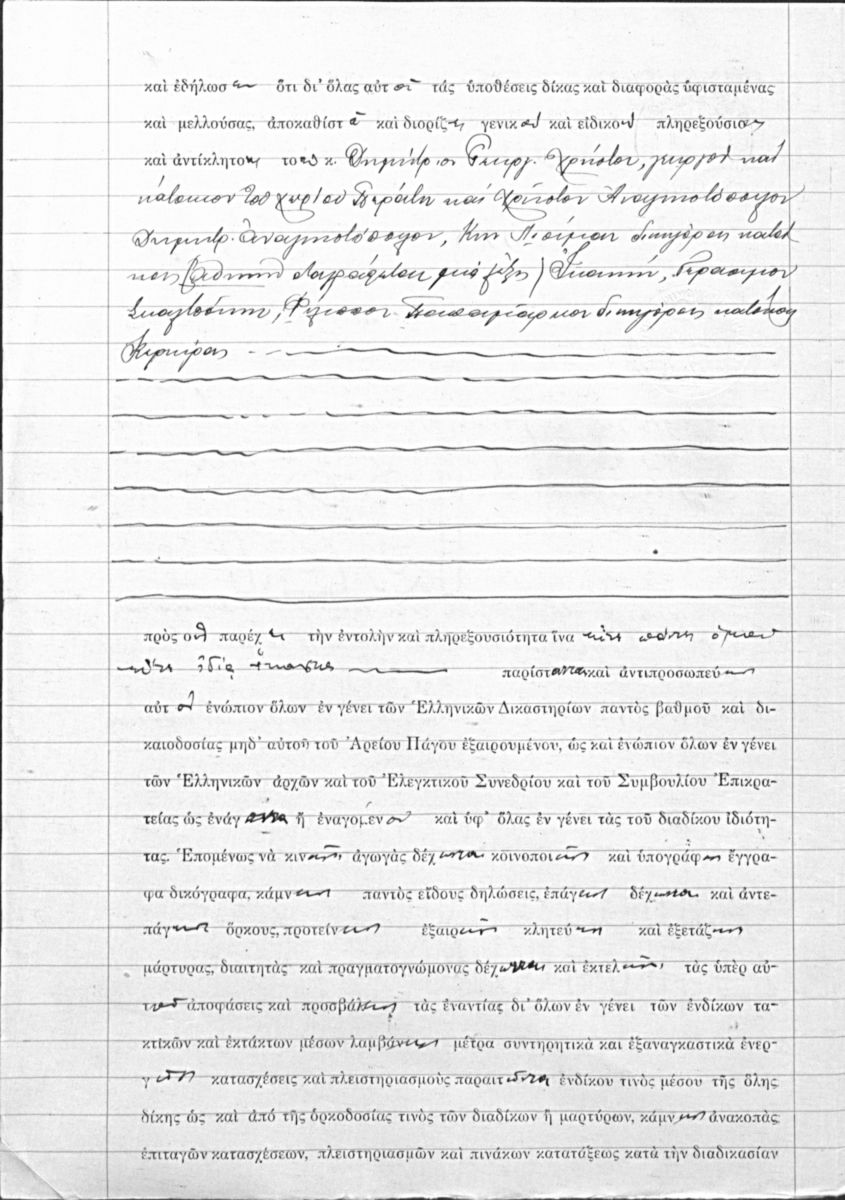 καὶ ἐδήλωσεν ὅτι δι' ὅλας αὐτοῦ τάς ὑποθέσεις δίκας καὶ διαφορὰς ὑφισταμένας
καὶ μελλούσας, ἀποκαθιστᾷ καὶ διορίζει γενικοὺς καὶ εἰδικοὺς πληρεξουσίους
καὶ ἀντίκλητους τους κ. Δημήτριον Γεωργ. Χρήστου, γεωργὸν καὶ
κάτοικον τοῦ χωρίου Περάτη καὶ Χρῆστον Ἀναγνωστόπουλον
Δημητρ. Ἀναγνωστόπουλον, δικηγόρους
Γεράσιμον
Φίλιππον δικηγόρους κατοίκους
Κερκύρας
πρὸς οὓς παρέχει τὴν ἐντολὴν καὶ πληρεξουσιότητα ἵνα πάντες ὁμοῦ
ἰδίᾳ ἕκαστος παρίστανται καὶ ἀντιπροσωπεύωσιν
αὐτὸν ἐνώπιον ὅλων ἐν γένει τῶν Ἑλληνικῶν Δικαστηρίων παντὸς βαθμοῦ καὶ δι-
καιοδοσίας μηδ' αὐτοῦ τοῦ Ἀρείου Πάγου ἐξαιρουμένου, ὡς καὶ ἐνώπιον ὅλων ἐν γένει
τῶν Ἑλληνικῶν ἀρχῶν καὶ τοῦ Ἐλεγκτικοῦ Συνεδρίου καὶ τοῦ Συμβουλίου Ἐπικρα-
τείας ὡς ἐνάγοντα ἢ ἐναγόμενον καὶ ὑφ' ὅλας ἐν γένει τὰς τοῦ διαδίκου ἰδιότη-
τας. Ἑπομένως νὰ κινῶσιν ἀγωγὰς δέχωνται κοινοποιῶσιν καὶ ὑπογράφωσιν ἔγγρα-
φα δικόγραφα, κάμνωσιν παντὸς εἴδους δηλώσεις, ἐπάγωσιν δέχωνται καὶ ἀντε-
πάγωσιν ὅρκους, προτείνωσιν ἐξαιρῶσιν κλητεύωσιν καὶ ἐξετάζωσιν
μάρτυρας, διαιτητὰς καὶ πραγματογνώμονας δέχωνται καὶ ἐκτελῶσιν τὰς ὑπὲρ αὐ-
τοῦ ἀποφάσεις καὶ προσβάλωσιν τὰς ἐναντίας δι' ὅλων ἐν γένει τῶν ἐνδίκων τα-
κτικῶν καὶ ἐκτάκτων μέσων λαμβάνωσιν μέτρα συντηρητικὰ και ἐξαναγκαστικὰ ἐνερ-
γῶσιν κατασχέσεις καὶ πλειστηριασμοὺς παραιτῶνται ἐνδίκου τινὸς μέσου τῆς ὅλης
δίκης ὡς καὶ ἀπό τῆς ὁρκοδοσίας τινὸς τῶν διαδίκων ἢ μαρτύρων, κάμνωσιν ἀνακοπὰς
ἐπιταγῶν κατασχέσεων, πλειστηριασμῶν καὶ πινάκων κατατάξεως κατὰ τὴν διαδικασίαν